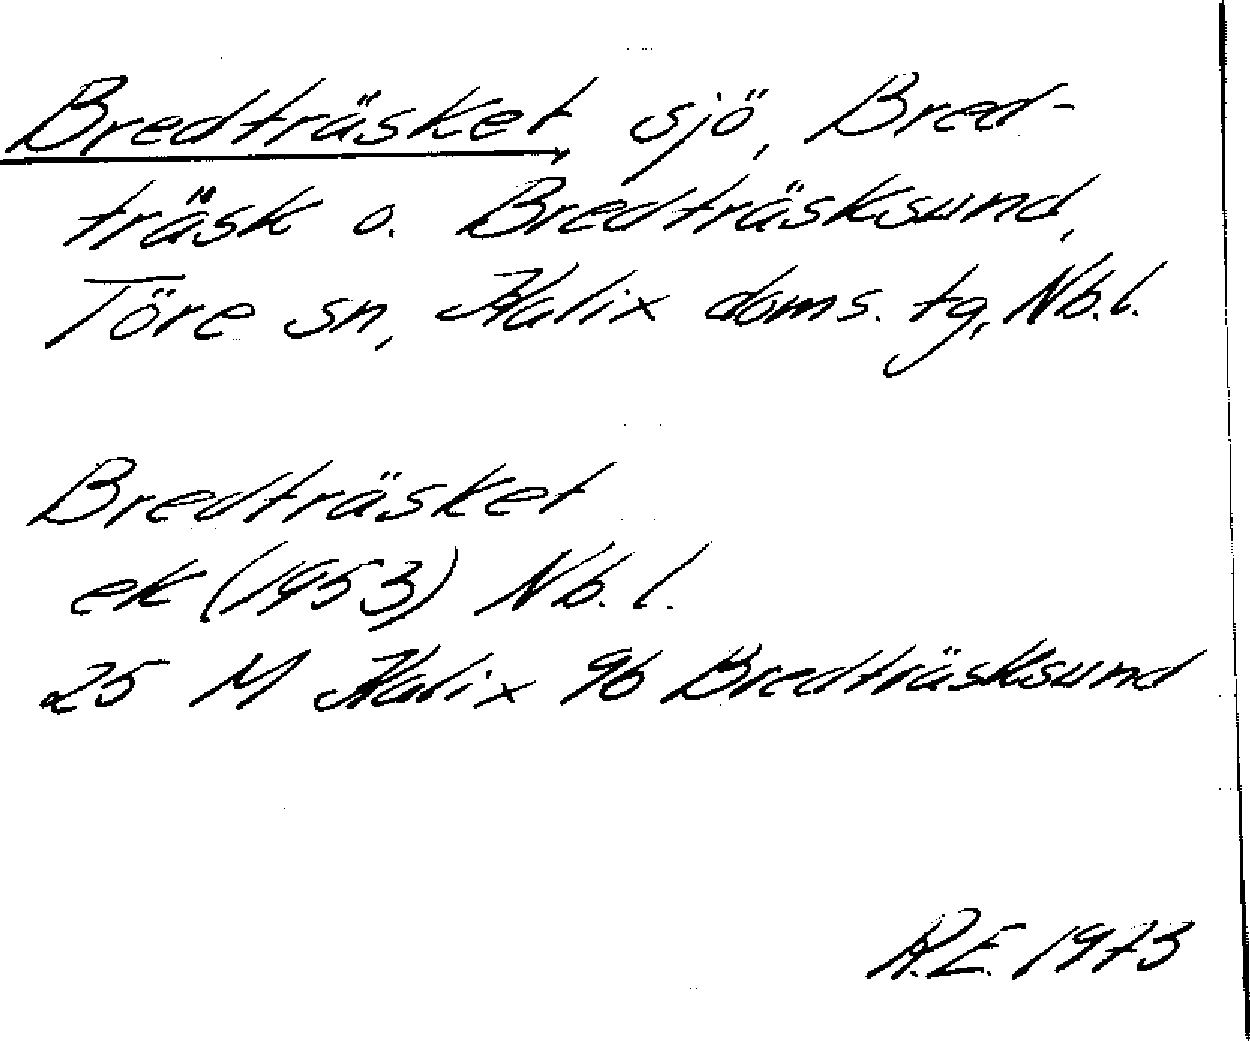 Bredträsket, sjö, Bred-
träsk o. Bredträsksund,
Töre sn, Kalix doms. tg, Nb.l.
Bredträsket
ek (1953) Nb. l.
25 M Kalix 9b Bredträsksund
R.E. 1973